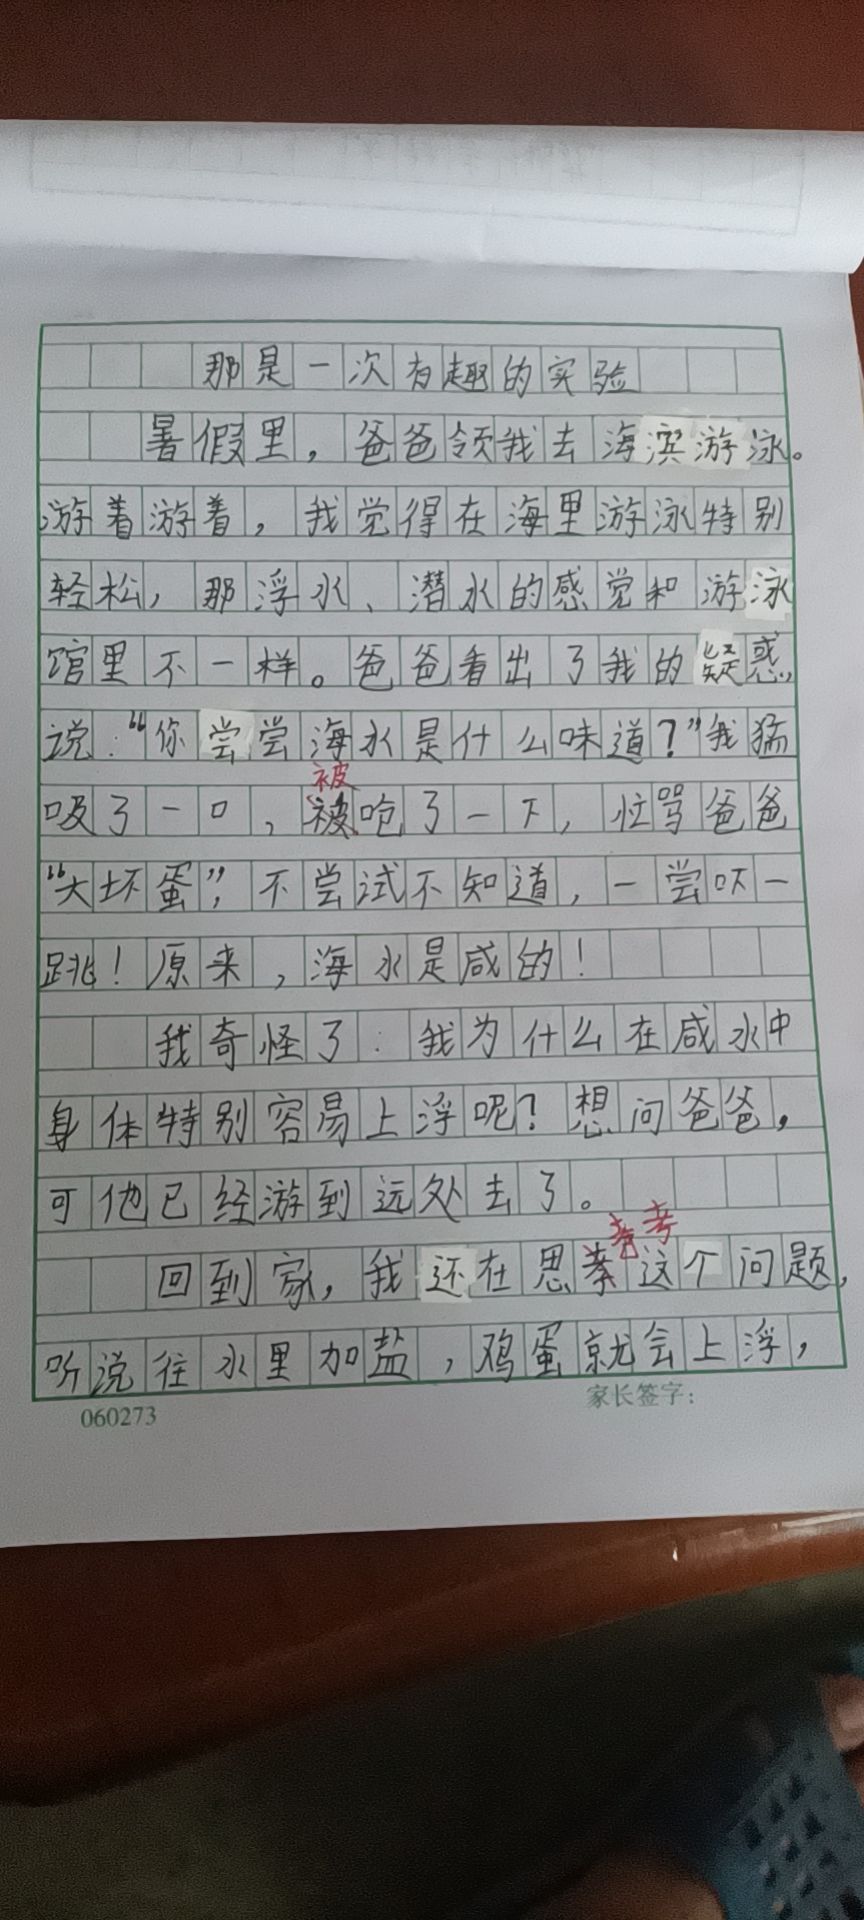 那是一次有趣的实验
暑假里，爸爸领我去海滨游泳。
游着游着，我觉得在海里游泳特别
轻松，那浮水、潜水的感觉和游泳
馆里不一样。爸爸看出了我的疑惑，
说：“你尝尝海水是什么味道？”我猛
被
吸了一口，被呛了一下，忙骂爸爸
“大坏蛋”，不尝试不知道，一尝吓一
跳！原来，海水是咸的！
我奇怪了：我为什么在咸水中
身体特别容易上浮呢？想问爸爸，
可他已经游到远处去了。
考
回到家，我还在思考这个问题，
听说往水里加盐，鸡蛋就会上浮，
060273
家长签字：